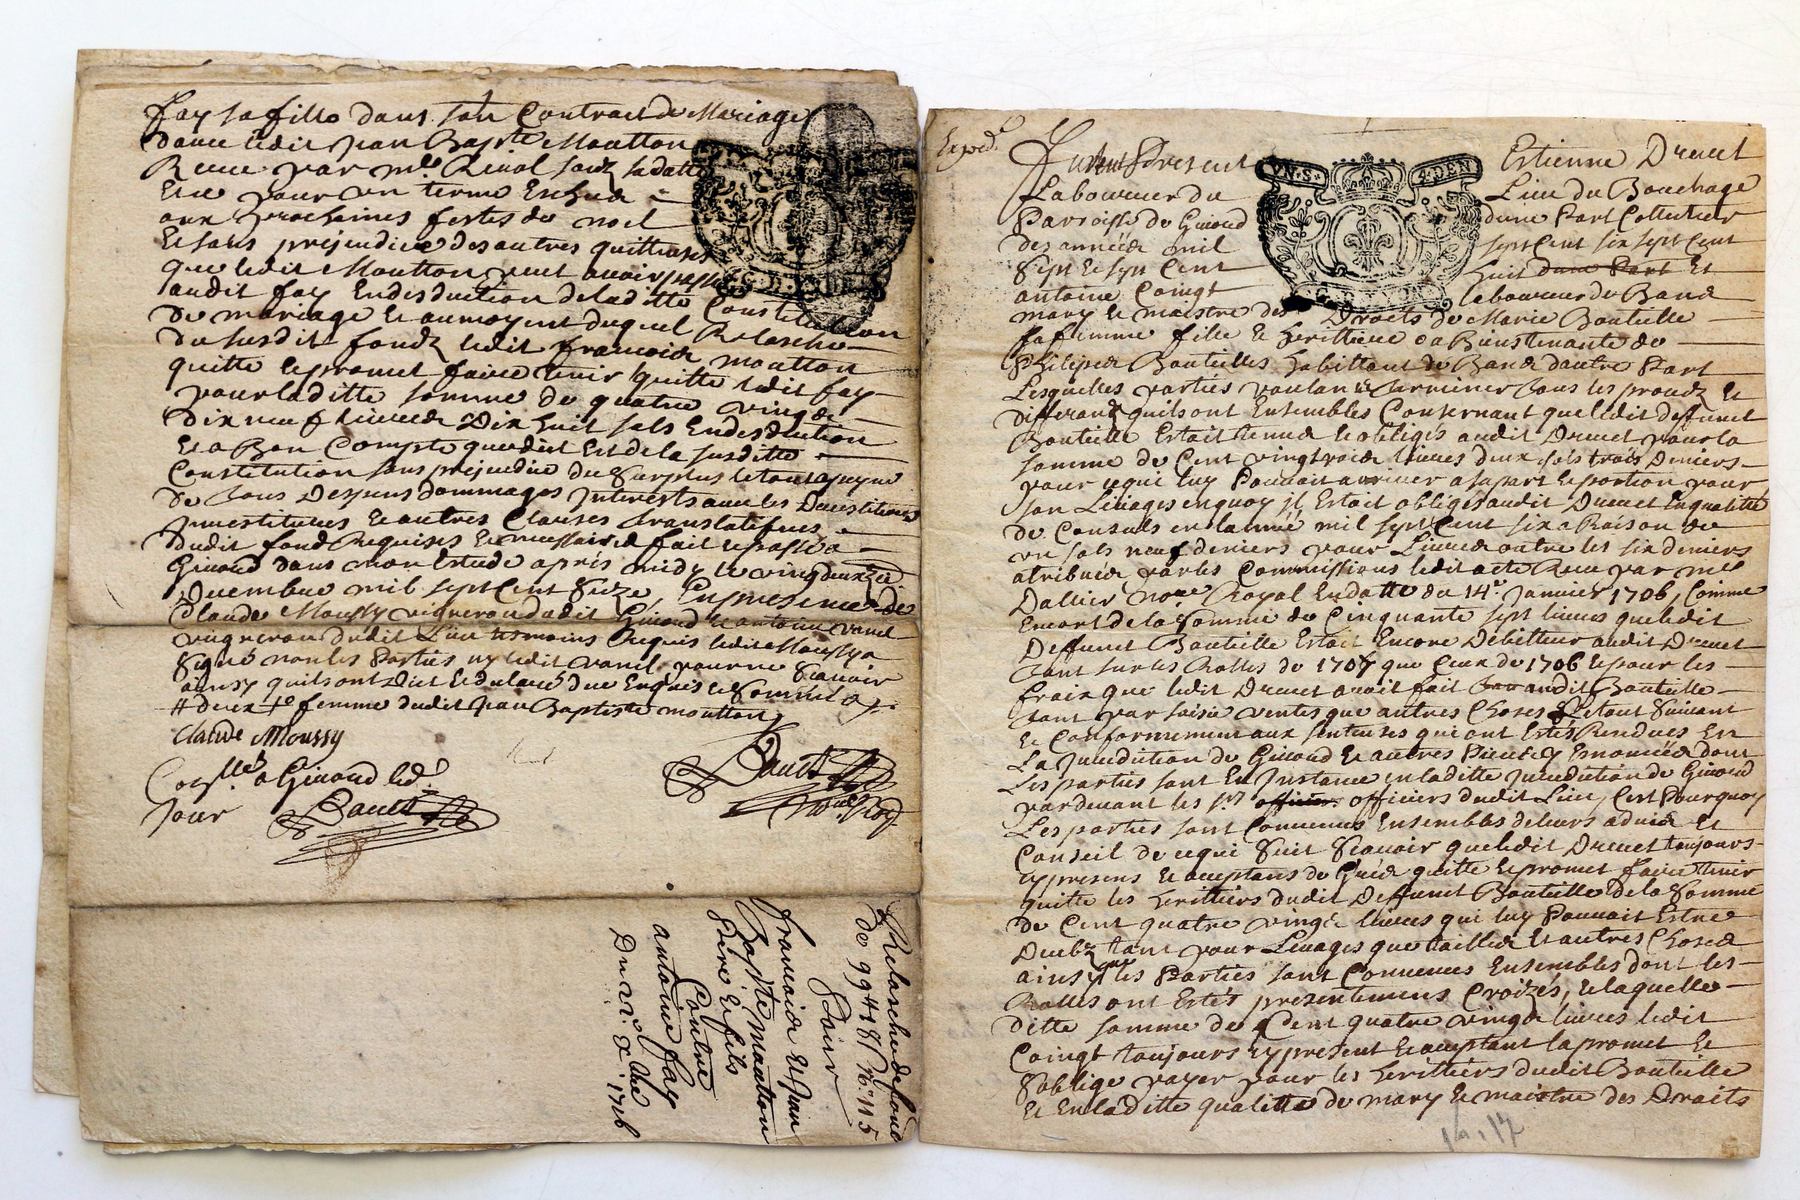 fay sa fille dans son Contract de Mariage
davec ledit Jean Bapte Moutton
Receu par me
aux prochaines festes de noel
Et sans prejudice des autres quittances
que ledit Moutton peut avoir passé
audit fay En desduction de laditte Constitution
de mariage Et au moyent duquel Relasche
du susdit fondz ledit francois moutton
quitte Et promet faire tenir quitte ledit fay
pour laditte somme de quatre vingt
dix neuf livres Dix huit sols En desduction
Et a Bon Compte que dict Est de la susditte
Constitution sans prejudice du Surplus le tout a peyne
de tous Despens dommages Interests avec les Devestitures
Investitures Et autres Clauses translatifves
dudit fond Requises Et necessaires fait Et passé a
Giuord dans mon Estude aprés midy le vingt deux
Decembre mil sept Cent Seize, En presence de
Claude Moussy vigneron dudit Giuord Et antoine
vigneron dudit Lieu tesmoins Requis ledit Moussy a
Signé non les Parties ny ledit pour ne Scavoir
ainsy quils ont dict Et declaré de ce Enquis Et Sommés
femme dudit Jean Baptiste moutton
Claude Moussy
a Giuord led.
Relasche de fond
de 99 lt 18 s No 115
Pour
francois Et Jean
Bapte moutton
Pere Et fils
Contre
antoine fay
Du 22e Xbre 1716
Exped.
Furent Present Estienne Drevet
Laboureur du Lieu du Bouchage
Parroisse de Giuord dune Part Collecteur
des année mil sept Cent six sept Cent
Sept Et sept Cent huit dune Part Et
antoine Coingt laboureur de Band
mary Et maistre des Droits de Marie Bouteille
sa femme fille Et heritiere de
Philipe Bouteille habittant de Band dautre Part
Lesquelles parties voulan terminer tous les procez Et
differans quils ont Ensembles Consernant que ledit deffunct
Bouteille Estoit tenu Et obligés audit Drevet pour la
somme de Cent vingt trois livres deux sols trois deniers
pour ce qui luy Pouvoit arriver a sa part Et portion pour
son Livages en quoy il Estoit obligés audit Drevet En qualitte
de Consuls en lannee mil sept Cent six a Raison de
un sols neuf deniers pour Livre outre les six deniers
atribués par les Commissions ledit acte Receu par me
Dallier nore Royal En datte du 14e Janvier 1706, Comme
Encore de la Somme de Cinquante sept livres que ledit
Deffunct Bouteille Estoit Encore Debitteur audit Drevet
tant sur les Rolles de 1707 que Ceux de 1706 Et pour les
fraix que ledit Drevet avoit fait audit Bouteille
tant par saisie ventes que autres Choses Le tout Suivant
Et Conformement aux sentences qui ont Estés Rendues En
La Jurisdiction de Giuord Et autres Pieces y Enoncées dont
Les parties sont En Instance en laditte Jurisdiction de Giuord
pardevant les srs officiers officiers dudit Lieu, Cest Pourquoy
Les parties sont Convenues Ensembles de leurs advis Et
Conseil de ce qui Suit Scavoir que ledit Drevet toujours
cy present Et acceptans de Gré quitte Et promet faire tenir
quitte les heritiers dudit Deffunct Bouteille de la Somme
de Cent quatre vingt livres qui luy Pouvoit Estre
Deubz tant pour Livages que tailles Et autres Choses
ainsy que les Parties sont Convenues Ensembles dont les
Rolles ont Estés presentement Croizés, Et laquelle
ditte somme de Cent quatre vingt livres ledit
Coingt toujours cy present Et acceptant la promet Et
Soblige payer pour les heritiers dudit Bouteille
Et En laditte qualitte de mary Et maistre des Droits